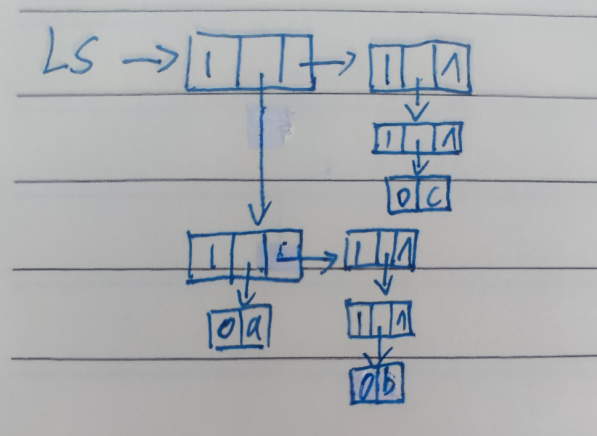 LS 1 1 ∧
1 1 ∧
0 c
1 1 ∧
0 a 1 ∧
0 b